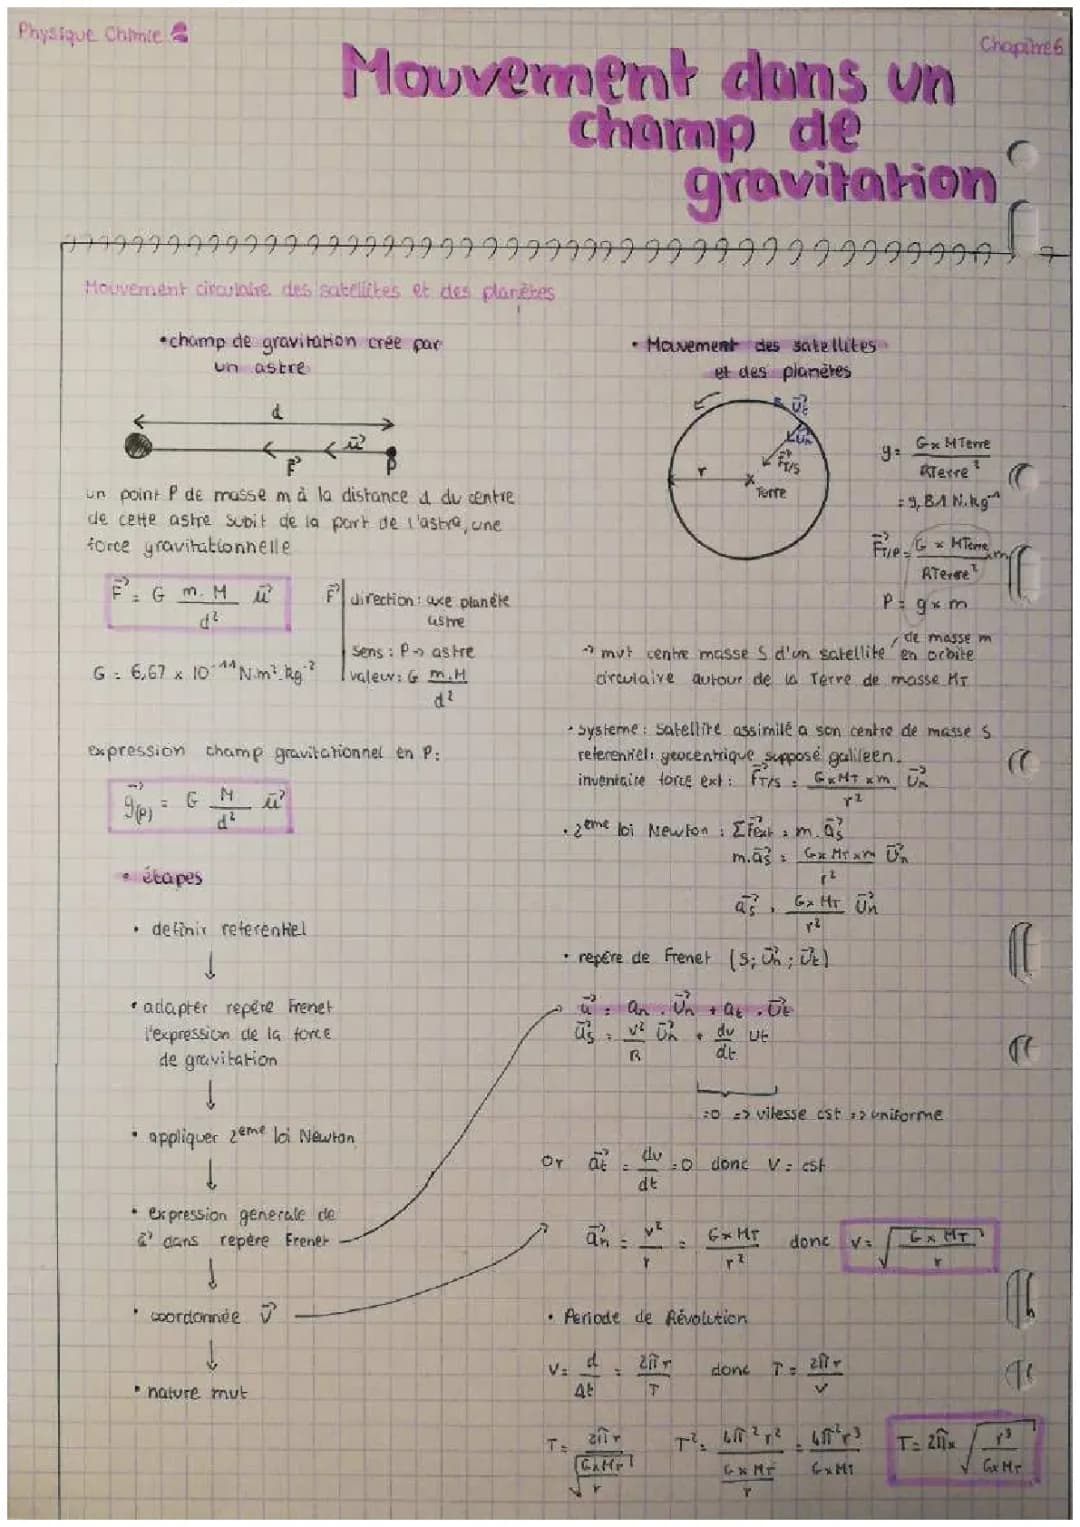 Physique Chimie
Chapitre 6
Mouvement dans un
champ de
gravitation
Mouvement circulaire des satellites et des planètes
• champ de gravitation crée par
un astre
d
F⃗
u⃗
P
un point P de masse m à la distance d du centre
de cette astre subit de la part de l'astre, une
force gravitationnelle
F⃗ = G m.M/d² u⃗
F⃗ direction: axe planète
astre
sens: P → astre
valeur: G m.M/d²
G = 6,67 x 10⁻¹¹ N.m².kg⁻²
expression champ gravitationnel en P:
g⃗(P) = G M/d² u⃗
• étapes
• definir referentiel
↓
• adapter repère Frenet
l'expression de la force
de gravitation
↓
• appliquer 2eme loi Newton
↓
• expression generale de
a⃗ dans repère Frenet
↓
• coordonnée V⃗
↓
• nature mvt
• Mouvement des satellites
et des planètes
U⃗t
U⃗n
F⃗T/S
r
Terre
g = G x MTerre/RTerre²
= 9,81 N.kg⁻¹
F⃗T/P = G x MTerre/RTerre² x m
P = g x m
→ mvt centre masse S d'un satellite de masse m en orbite
circulaire autour de la Terre de masse MT
• systeme: Satellite assimilé a son centre de masse S
referentiel: geocentrique supposé galileen.
inventaire force ext: F⃗T/S = GxMTxm/r² U⃗n
• 2eme loi Newton: ΣF⃗ext = m.a⃗s
m.a⃗s = GxMTxm/r² U⃗n
a⃗s = GxMT/r² U⃗n
• repère de Frenet (S; U⃗n; U⃗t)
a⃗ = an . U⃗n + at . U⃗t
a⃗s = v²/R U⃗n + dv/dt Ut
=0 => vitesse cst => uniforme
Or a⃗t = dv/dt = 0 donc V = cst
a⃗n = v²/r = GxMT/r² donc V = √(GxMT/r)
• Periode de Révolution
V = d/Δt = 2πr/T donc T = 2πr/v
T = 2πr/√(GxMT/r) T² = 4π²r²/(GxMT/r) = 4π²r³/GxMT T = 2π x √(r³/GxMT)